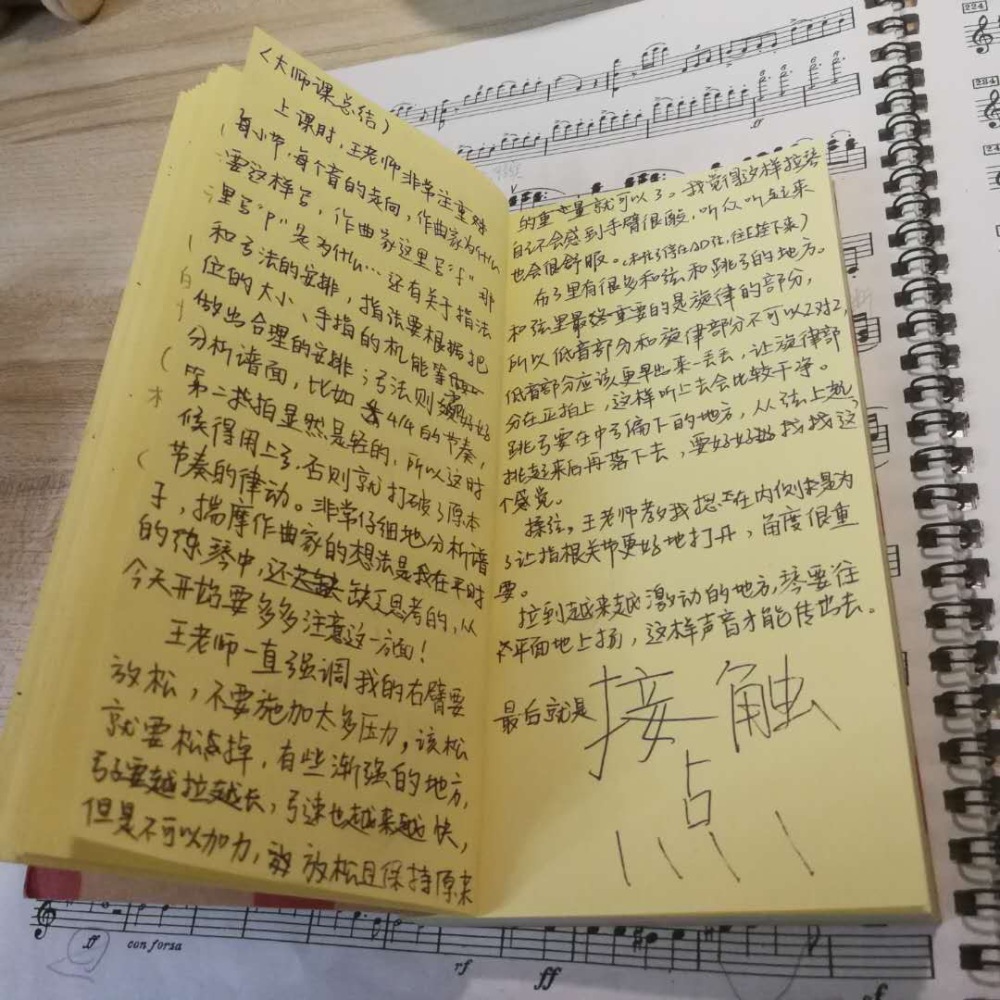 〈大师课总结〉
上课时，王老师非常注重对
每小节，每个音的走向，作曲家为什么
要这样写，作曲家这里写"f" 那
里写"p"是为什么…还有关于指法
和弓法的安排，指法要根据把
位的大小、手指的机能等
做出合理的安排；弓法则要好好
分析谱面，比如 4/4的节奏，
第二拍显然是轻的，所以这时
候得用上弓，否则就打破了原本
节奏的律动。非常仔细地分析谱
子，揣摩作曲家的想法是我在平时
的练琴中，还缺乏思考的，从
今天开始要多多注意这一方面！
王老师一直强调我的右臂要
放松，不要施加太多压力，该松
就要松掉，有些渐强的地方，
弓子要越拉越长，弓速也越来越快，
但是不可以加力，放松且保持原来
的重量就可以了。我觉得这样拉琴
自己不会感到手臂很酸，听众听起来
也会很舒服。
布鲁里有很多和弦和跳弓的地方。
和弦里最重要的是旋律的部分，
所以低音部分和旋律部分不可以2对2，
低音部分应该更早出来一丢丢，让旋律部
分在正拍上，这样听上去会比较干净。
跳弓要在中弓偏下的地方，从弦上
挑起来后再落下去，要好好找找这
个感觉。
揉弦，王老师教我想在内侧是为
了让指根关节更好地打开，角度很重
要。
拉到越来越激动的地方，琴要往
平面地上扬，这样声音才能传出去。
最后就是 接触
点
224
ff
ff
con forza
rf
ff